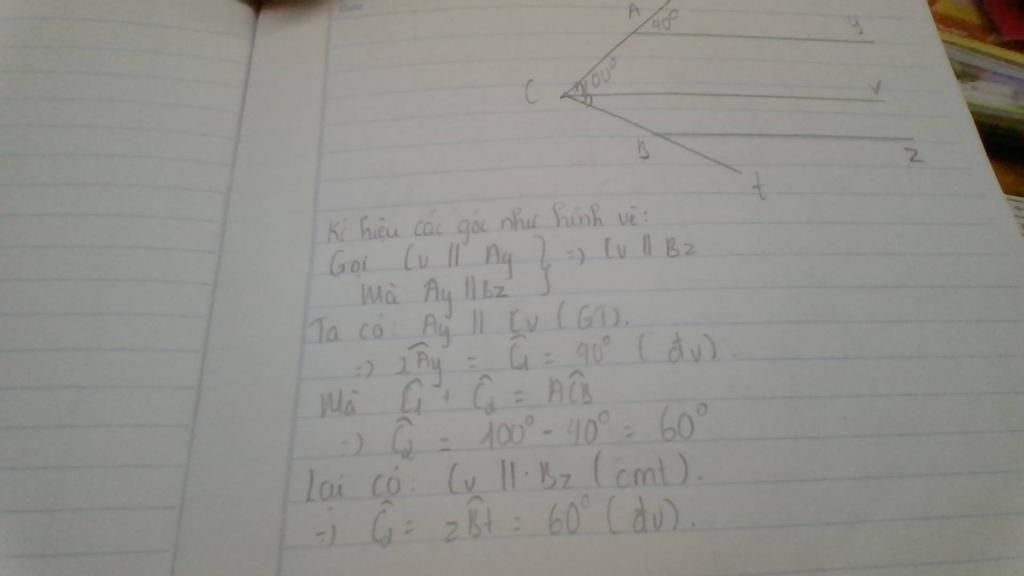 A 40° y
C 100° v
B z
t
Kí hiệu các góc như hình vẽ:
Gọi Cv // Ay } => Cv // Bz
Mà Ay // Bz
Ta có: Ay // Cv (GT).
=> xÂy = Ĉ1 = 40° (đv).
Mà Ĉ1 + Ĉ2 = AĈB
=> Ĉ2 = 100° - 40° = 60°
Lại có: Cv // Bz (cmt).
=> Ĉ2 = zB̂t = 60° (đv).